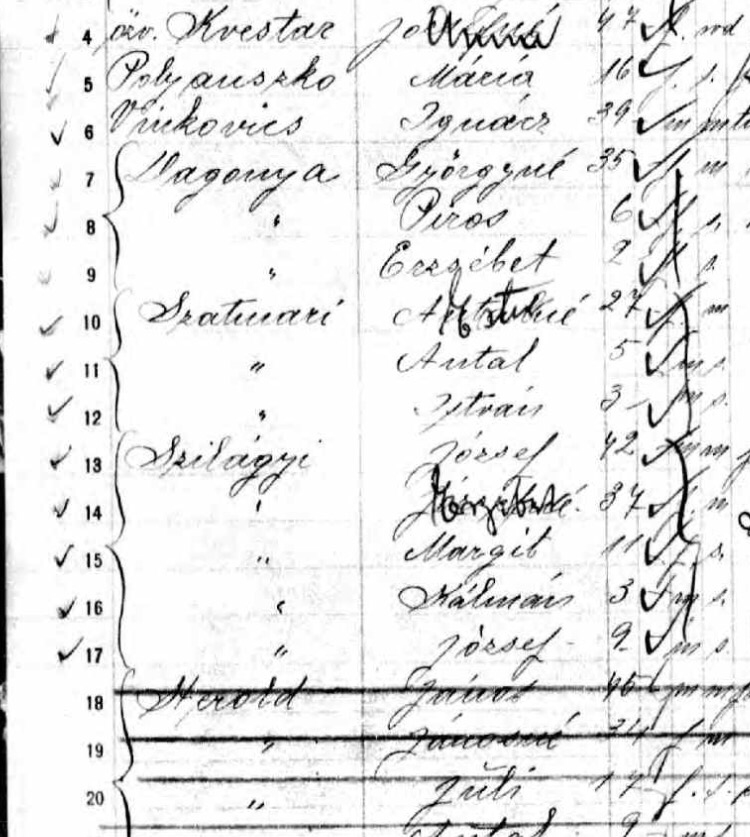 4 özv. Kvestar Anna 47 f. wd
5 Polyanszko Mária 16 f. s.
6 Vinkovics Ignácz 39 m m
7 Dagonya Györgyné 35 f. m
8 " Piros 6 f. s.
9 " Erzsébet 2 f. s.
10 Szatmari 27 f. m
11 " Antal 5 m s.
12 " István 3 m s.
13 Szilágyi József 42 m m
14 " 37 f. m
15 " Margit 11 f. s.
16 " Kálmán 3 m s.
17 " József 9 m s.
18 Herold János 45 m m
19 " Jánosné f m
20 " Juli 17 f. s.
" Antal